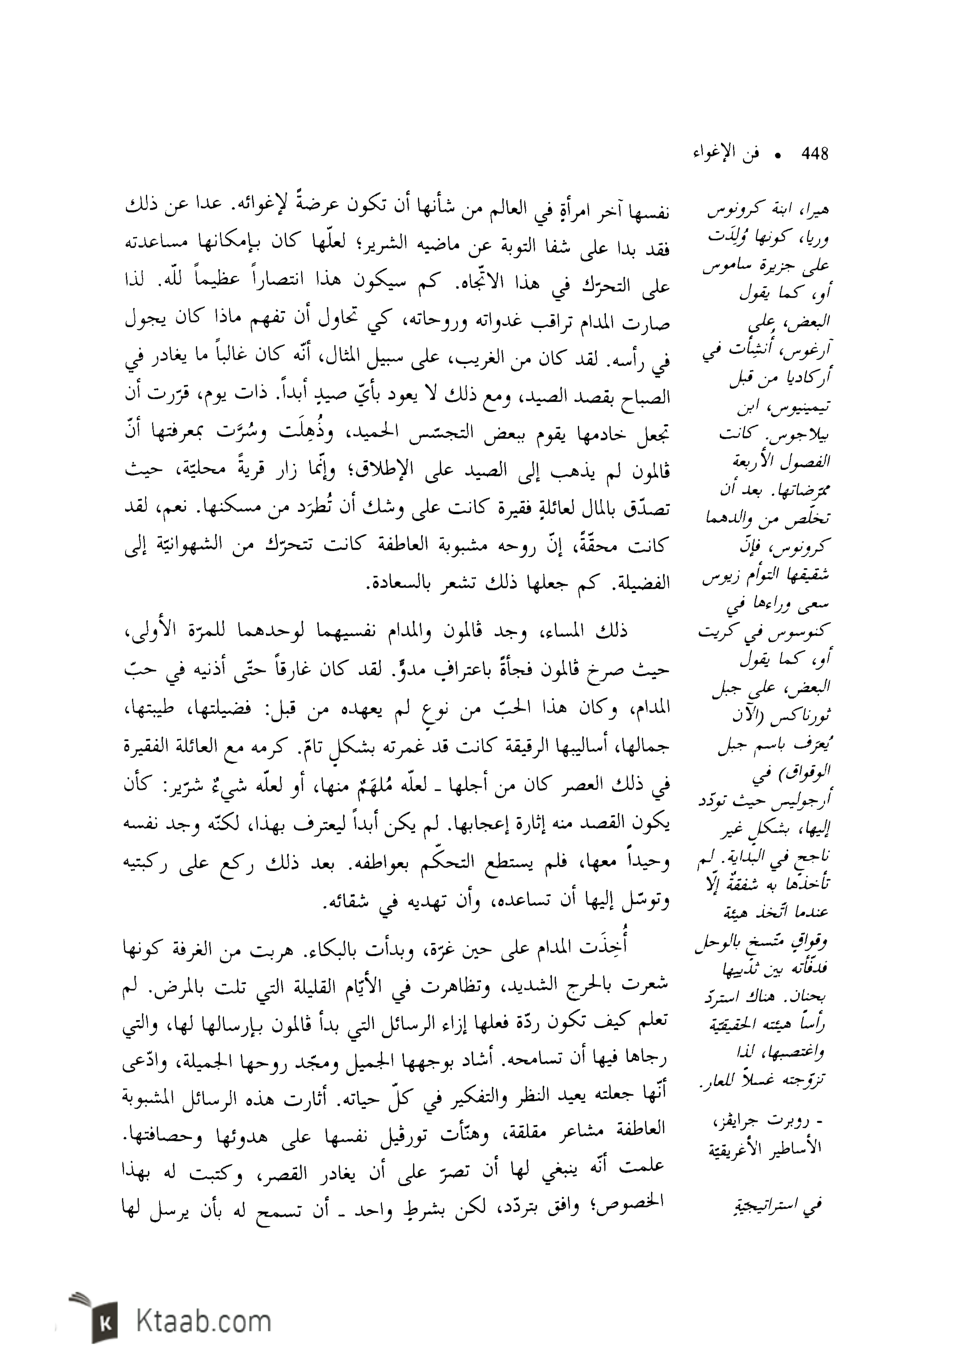 448 • فن الإغواء
نفسها آخر امرأةٍ في العالم من شأنها أن تكون عرضةً لإغوائه. عدا عن ذلك
فقد بدا على شفا التوبة عن ماضيه الشرير؛ لعلّها كان بإمكانها مساعدته
على التحرّك في هذا الاتّجاه. كم سيكون هذا انتصاراً عظيماً للّه. لذا
صارت المدام تراقب غدواته وروحاته، كي تحاول أن تفهم ماذا كان يجول
في رأسه. لقد كان من الغريب، على سبيل المثال، أنّه كان غالباً ما يغادر في
الصباح بقصد الصيد، ومع ذلك لا يعود بأيّ صيدٍ أبداً. ذات يوم، قرّرت أن
تجعل خادمها يقوم ببعض التجسّس الحميد، وذُهِلَت وسُرَّت بمعرفتها أنّ
ڤالمون لم يذهب إلى الصيد على الإطلاق؛ وإنّما زار قريةً محليّة، حيث
تصدّق بالمال لعائلةٍ فقيرة كانت على وشك أن تُطرَد من مسكنها. نعم، لقد
كانت محقّةً، إنّ روحه مشبوبة العاطفة كانت تتحرّك من الشهوانيّة إلى
الفضيلة. كم جعلها ذلك تشعر بالسعادة.
ذلك المساء، وجد ڤالمون والمدام نفسيهما لوحدهما للمرّة الأولى،
حيث صرخ ڤالمون فجأةً باعترافٍ مدوٍّ. لقد كان غارقاً حتّى أذنيه في حبّ
المدام، وكان هذا الحبّ من نوعٍ لم يعهده من قبل: فضيلتها، طيبتها،
جمالها، أساليبها الرقيقة كانت قد غمرته بشكلٍ تامّ. كرمه مع العائلة الفقيرة
في ذلك العصر كان من أجلها ـ لعلّه مُلهَمٌ منها، أو لعلّه شيءٌ شرّير: كأن
يكون القصد منه إثارة إعجابها. لم يكن أبداً ليعترف بهذا، لكنّه وجد نفسه
وحيداً معها، فلم يستطع التحكّم بعواطفه. بعد ذلك ركع على ركبتيه
وتوسّل إليها أن تساعده، وأن تهديه في شقائه.
أُخِذَت المدام على حين غرّة، وبدأت بالبكاء. هربت من الغرفة كونها
شعرت بالحرج الشديد، وتظاهرت في الأيّام القليلة التي تلت بالمرض. لم
تعلم كيف تكون ردّة فعلها إزاء الرسائل التي بدأ ڤالمون بإرسالها لها، والتي
رجاها فيها أن تسامحه. أشاد بوجهها الجميل ومجّد روحها الجميلة، وادّعى
أنّها جعلته يعيد النظر والتفكير في كلّ حياته. أثارت هذه الرسائل المشبوبة
العاطفة مشاعر مقلقة، وهنّأت تورڤيل نفسها على هدوئها وحصافتها.
علمت أنّه ينبغي لها أن تصرّ على أن يغادر القصر، وكتبت له بهذا
الخصوص؛ وافق بتردّد، لكن بشرطٍ واحد ـ أن تسمح له بأن يرسل لها
هيرا، ابنة كرونوس
وريا، كونها وُلِدَت
على جزيرة ساموس
أو، كما يقول
البعض، على
آرغوس، أُنشِأت في
أركاديا من قبل
تيمينيوس، ابن
بيلاجوس. كانت
الفصول الأربعة
ممرّضاتها. بعد أن
تخلّص من والدهما
كرونوس، فإنّ
شقيقها التوأم زيوس
سعى وراءها في
كنوسوس في كريت
أو، كما يقول
البعض، على جبل
ثورناكس (الآن
يُعرَف باسم جبل
الوقواق) في
أرجوليس حيث تودّد
إليها، بشكلٍ غير
ناجحٍ في البداية. لم
تأخذها به شفقةٌ إلّا
عندما اتّخذ هيئة
وقواقٍ متّسخ بالوحل
فدفّأته بين ثدييها
بحنان. هناك استردّ
رأساً هيئته الحقيقيّة
واغتصبها، لذا
تزوّجته غسلاً للعار.
ـ روبرت جرايڤز،
الأساطير الأغريقيّة
في استراتيجيّةٍ
Ktaab.com